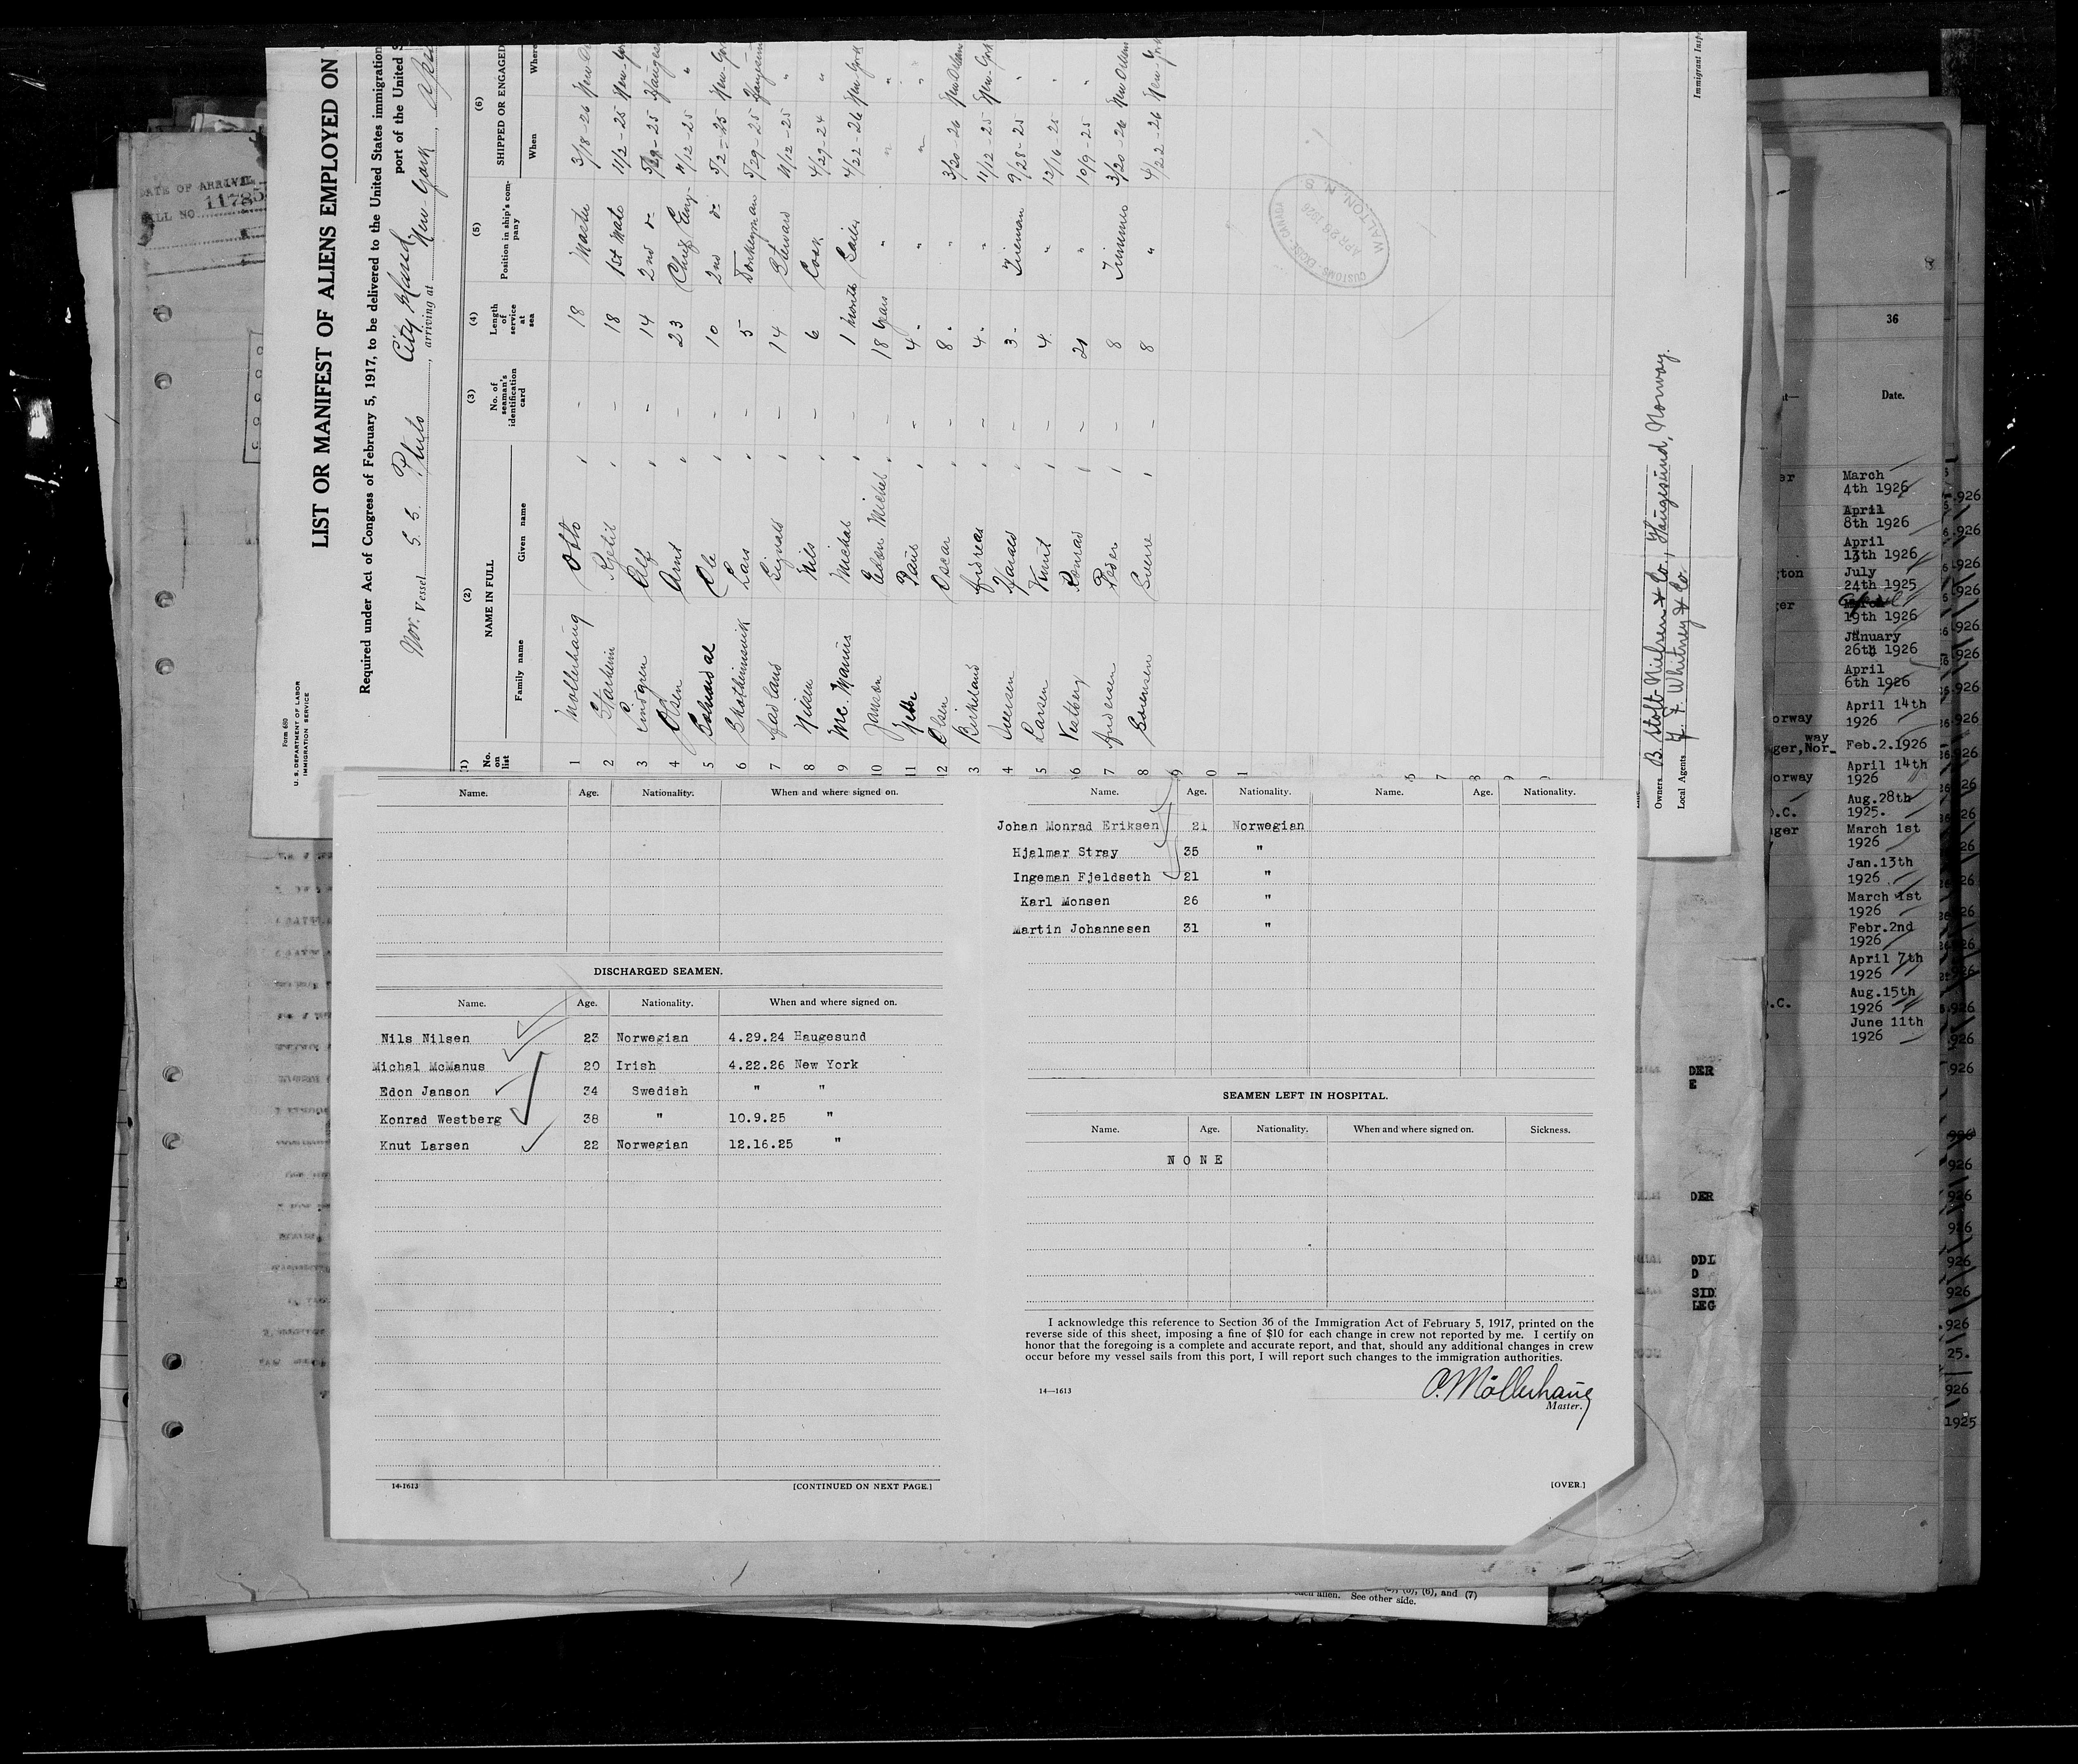 Form 680
U. S. DEPARTMENT OF LABOR
IMMIGRATION SERVICE
LIST OR MANIFEST OF ALIENS EMPLOYED ON
Required under Act of Congress of February 5, 1917, to be delivered to the United States immigration
port of the United S
Nor. Vessel S. S. Pluto City Island, arriving at New-York,
(1) (2) (3) (4) (5) (6)
No. on list NAME IN FULL No. of seaman's identification card Length of service at sea Position in ship's company SHIPPED OR ENGAGED
Family name Given name When Where
1 Mollerhaug Otto - 18 Master 3/18-26
2 Starheim Kjetil - 18 1st Mate 11/2-25 New-York
3 Lindgren Alf - 14 2nd do 5/29-25
4 Olsen Arnt - 23 Chief Eng. 11/12-25 "
5 Ole - 10 2nd do 5/2-25 New-York
6 Lars - 5 Donkeyman 5/29-25
7 Aadland Signald - 14 Steward 11/12-25 "
8 Nilsen Nils - 6 Cook 4/29-24 "
9 Mc. Manus Michal - 1 month Sailor 4/22-26 New York
10 Janson Edon Michel - 18 years " " "
11 Paul - 4 " " " "
12 Olsen Oscar - 8 " " 3/20-26 New Orleans
3 Birkeland Andreas - 4 " " 11/12-25 New-York
4 Iversen Harald - 3 - Fireman 9/28-25 "
5 Larsen Knut - 4 " 12/16-25 "
6 Vestberg Konrad - 21 " 10/9-25 "
7 Andersen Peder - 8 Trimmer 3/20-26 New Orleans
8 Sorensen Sverre - 8 " 4/22-26 New-York
CUSTOMS-EXCISE-CANADA
APR 26 1926
WALTON, N. S.
Owners B. Stolt-Nielsen & Co., Haugesund, Norway.
Local Agents F. F. Whitney & Co.
Immigrant Insp
DATE OF ARRIVAL
11785
Name. Age. Nationality. When and where signed on.
DISCHARGED SEAMEN.
Name. Age. Nationality. When and where signed on.
Nils Nilsen 23 Norwegian 4.29.24 Haugesund
Michal McManus 20 Irish 4.22.26 New York
Edon Janson 34 Swedish " "
Konrad Westberg 38 " 10.9.25 "
Knut Larsen 22 Norwegian 12.16.25 "
14-1613
[CONTINUED ON NEXT PAGE.]
Name. Age. Nationality. Name. Age. Nationality.
Johan Monrad Eriksen 21 Norwegian
Hjalmar Stray 35 "
Ingeman Fjeldseth 21 "
Karl Monsen 26 "
Martin Johannesen 31 "
SEAMEN LEFT IN HOSPITAL.
Name. Age. Nationality. When and where signed on. Sickness.
NONE
I acknowledge this reference to Section 36 of the Immigration Act of February 5, 1917, printed on the
reverse side of this sheet, imposing a fine of $10 for each change in crew not reported by me. I certify on
honor that the foregoing is a complete and accurate report, and that, should any additional changes in crew
occur before my vessel sails from this port, I will report such changes to the immigration authorities.
14—1613
O. Möllerhaug
Master.
[OVER.]
36
Date.
March
4th 1926
April
8th 1926
April
13th 1926
July
24th 1925
19th 1926
January
26th 1926
April
6th 1926
April 14th
1926
Feb.2.1926
April 14th
1926
Aug.28th
1925.
March 1st
1926
Jan.13th
1926
March 1st
1926
Febr.2nd
1926
April 7th
1926
Aug.15th
1926
June 11th
1926
See other side.
(6), and (7)